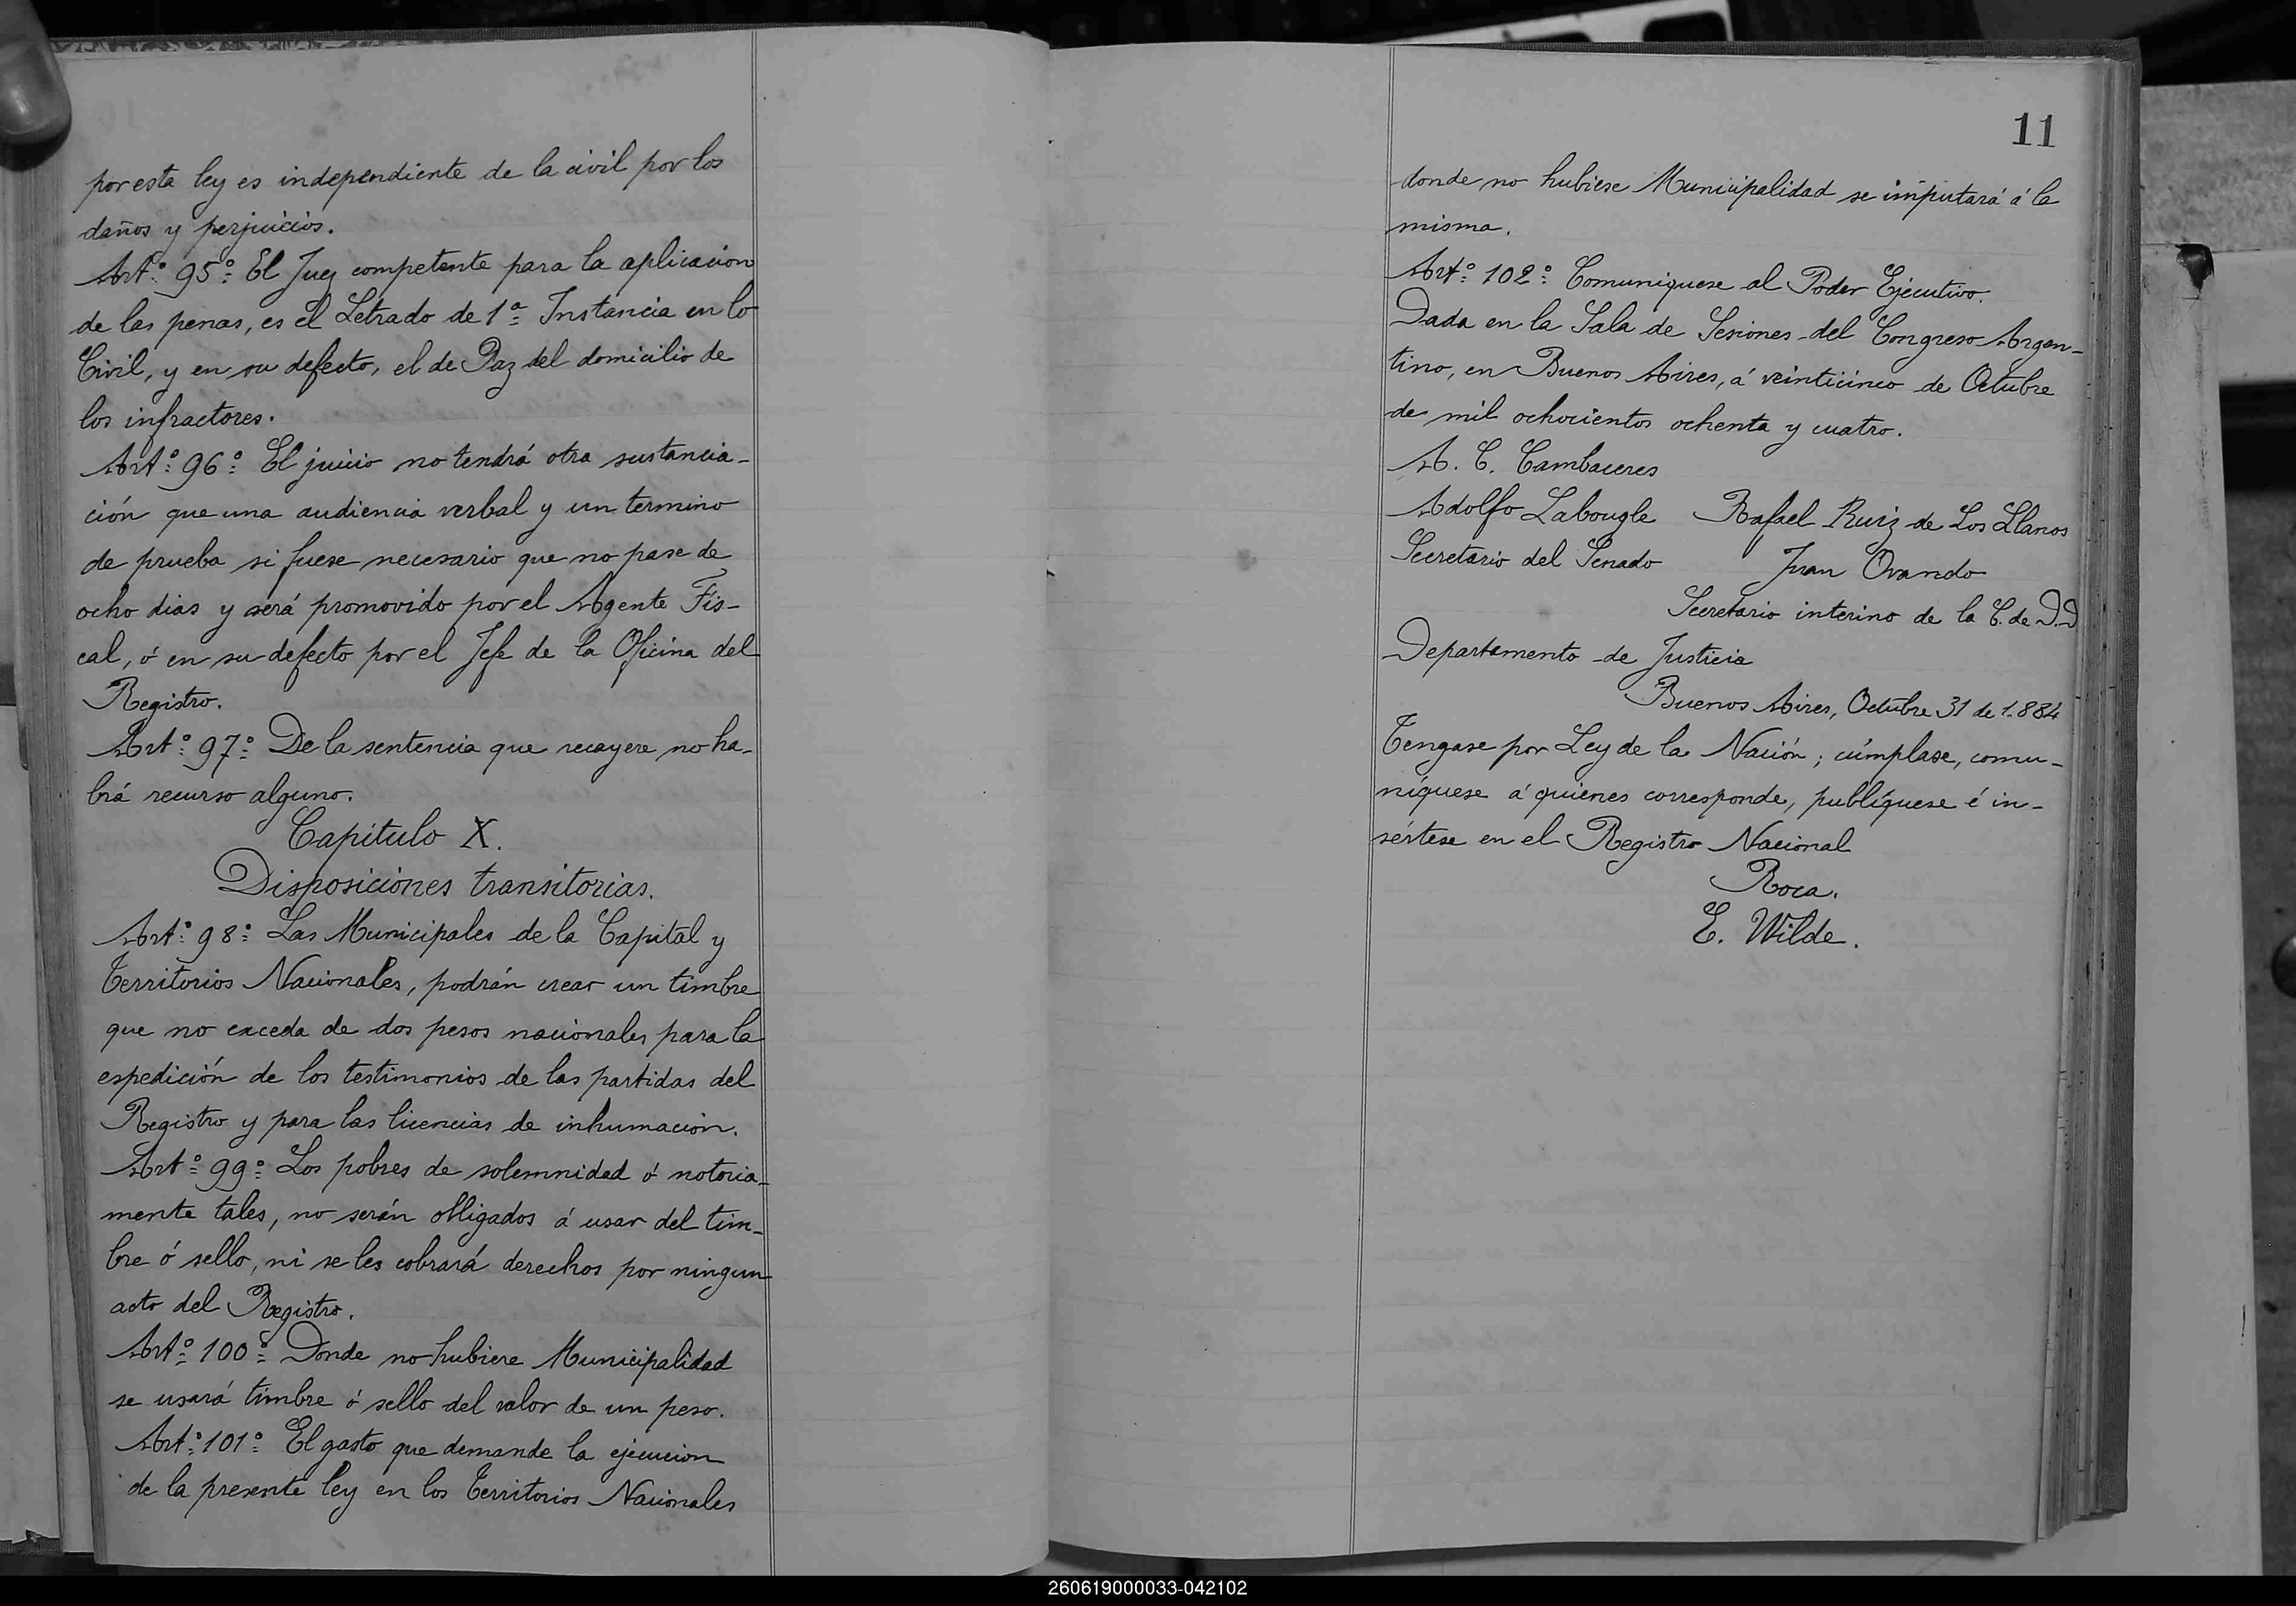 por esta ley es independiente de la civil por los
daños y perjuicios.
Artº 95º El Juez competente para la aplicacion
de las penas, es el Letrado de 1ª Instancia en lo
Civil, y en su defecto, el de Paz del domicilio de
los infractores.
Artº 96º El juicio no tendrá otra sustancia-
ción que una audiencia verbal y un termino
de prueba si fuese necesario que no pase de
ocho dias y será promovido por el Agente Fis-
cal, ó en su defecto por el Jefe de la Oficina del
Registro.
Artº 97º De la sentencia que recayere no ha-
brá recurso alguno.
Capitulo X.
Disposiciones transitorias.
Artº 98º Las Municipales de la Capital y
Territorios Nacionales, podrán crear un timbre
que no exceda de dos pesos nacionales para la
espedición de los testimonios de las partidas del
Registro y para las licencias de inhumacion.
Artº 99º Los pobres de solemnidad ó notoria-
mente tales, no serán obligados á usar del tim-
bre ó sello, ni se les cobrará derechos por ningun
acto del Registro.
Artº 100º Donde no hubiere Municipalidad
se usará timbre ó sello del valor de un peso.
Artº 101º El gasto que demande la ejecucion
de la presente ley en los Territorios Nacionales
11
donde no hubiese Municipalidad se imputará á la
misma.
Artº 102º Comuniquese al Poder Ejecutivo.
Dada en la Sala de Sesiones del Congreso Argen-
tino, en Buenos Aires, á veinticinco de Octubre
de mil ochocientos ochenta y cuatro.
A. C. Cambaceres
Adolfo Labougle Rafael Ruiz de Los Llanos
Secretario del Senado Juan Ovando
Secretario interino de la C. de D.D
Departamento de Justicia
Buenos Aires, Octubre 31 de 1.884
Tengase por Ley de la Nación; cúmplase, comu-
níquese á quienes corresponde, publíquese é in-
sértese en el Registro Nacional
Roca.
E. Wilde.
260619000033-042102